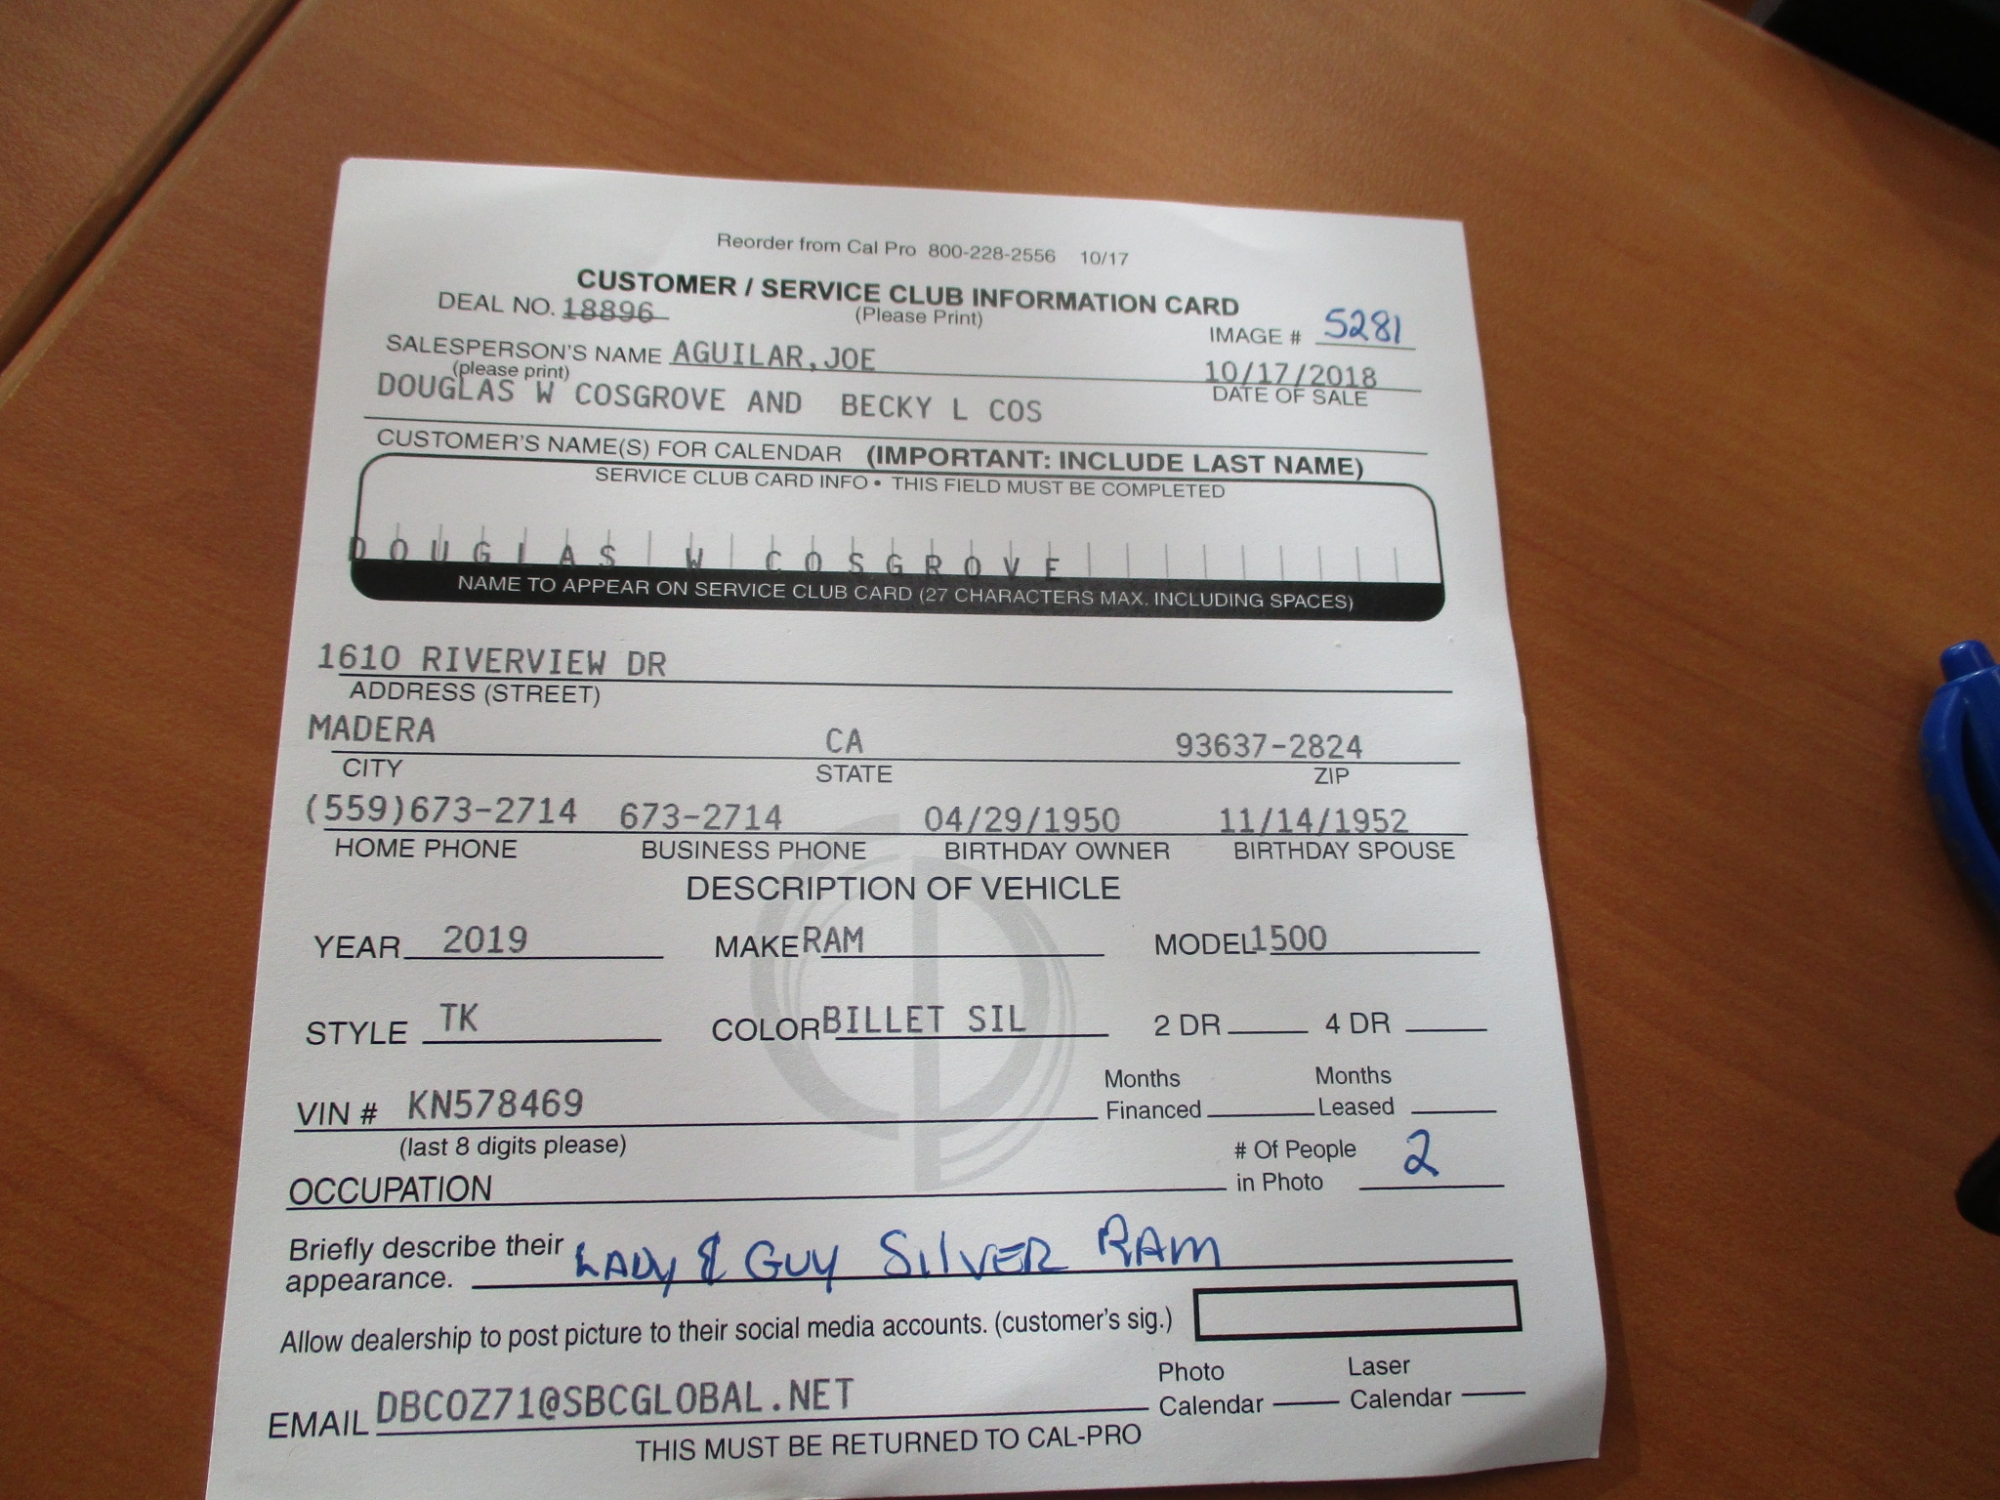 Reorder from Cal Pro 800-228-2556 10/17
CUSTOMER / SERVICE CLUB INFORMATION CARD
DEAL NO. 18896 (Please Print) IMAGE # 5281
SALESPERSON'S NAME AGUILAR, JOE 10/17/2018
(please print) DATE OF SALE
DOUGLAS W COSGROVE AND BECKY L COS
CUSTOMER'S NAME(S) FOR CALENDAR (IMPORTANT: INCLUDE LAST NAME)
SERVICE CLUB CARD INFO • THIS FIELD MUST BE COMPLETED
DOUGLAS W COSGROVE
NAME TO APPEAR ON SERVICE CLUB CARD (27 CHARACTERS MAX. INCLUDING SPACES)
1610 RIVERVIEW DR
ADDRESS (STREET)
MADERA CA 93637-2824
CITY STATE ZIP
(559)673-2714 673-2714 04/29/1950 11/14/1952
HOME PHONE BUSINESS PHONE BIRTHDAY OWNER BIRTHDAY SPOUSE
DESCRIPTION OF VEHICLE
YEAR 2019 MAKE RAM MODEL 1500
STYLE TK COLOR BILLET SIL 2 DR 4 DR
Months Months
VIN # KN578469 Financed Leased
(last 8 digits please) # Of People
OCCUPATION in Photo 2
Briefly describe their
appearance. LADY & GUY SILVER RAM
Allow dealership to post picture to their social media accounts. (customer's sig.)
Photo Laser
EMAIL DBCOZ71@SBCGLOBAL.NET Calendar Calendar
THIS MUST BE RETURNED TO CAL-PRO